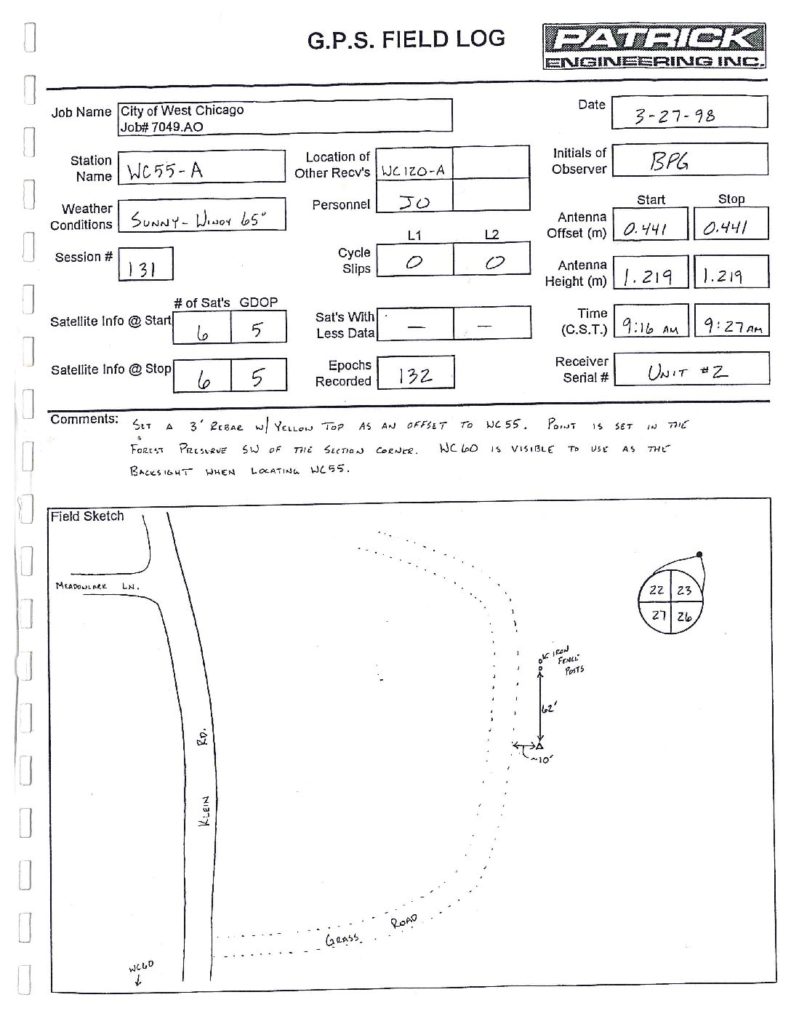 G.P.S. FIELD LOG
PATRICK
ENGINEERING INC.
Job Name City of West Chicago
Job# 7049.AO
Date 3-27-98
Station Name WC55-A
Location of Other Recv's WC120-A
Initials of Observer BPG
Weather Conditions SUNNY - WINDY 65°
Personnel JO
Start Stop
Antenna Offset (m) 0.441 0.441
Session # 131
L1 L2
Cycle Slips 0 0
Antenna Height (m) 1.219 1.219
# of Sat's GDOP
Satellite Info @ Start 6 5
Sat's With Less Data — —
Time (C.S.T.) 9:16 AM 9:27 AM
Satellite Info @ Stop 6 5
Epochs Recorded 132
Receiver Serial # UNIT #2
Comments: SET A 3' REBAR W/ YELLOW TOP AS AN OFFSET TO WC55. POINT IS SET IN THE
FOREST PRESERVE SW OF THE SECTION CORNER. WC60 IS VISIBLE TO USE AS THE
BACKSIGHT WHEN LOCATING WC55.
Field Sketch
MEADOWLARK LN.
22 23
27 26
IRON
FENCE
POSTS
62'
~10'
KLEIN RD.
GRASS ROAD
WC60